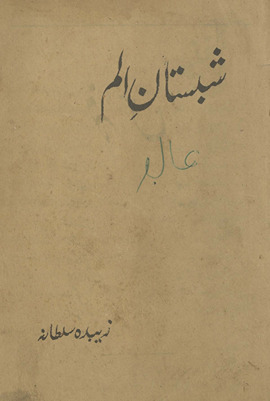 شبستانِ الم
زبیدہ سلطانہ